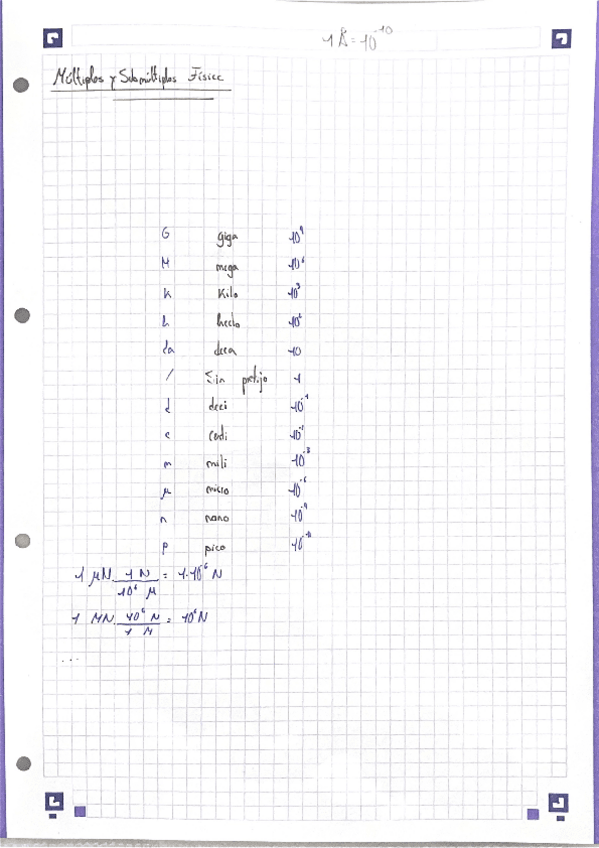 1 Å = 10⁻¹⁰
Múltiplos y Submúltiplos Física
G giga 10⁹
M mega 10⁶
k Kilo 10³
h hecto 10²
da deca 10
/ Sin prefijo 1
d deci 10⁻¹
c centi
m mili 10⁻³
μ micro 10⁻⁶
n nano 10⁻⁹
p pico
1 μN · 1 N / 10⁶ μ = 1·10⁻⁶ N
1 MN · 10⁶ N / 1 M = 10⁶ N
...